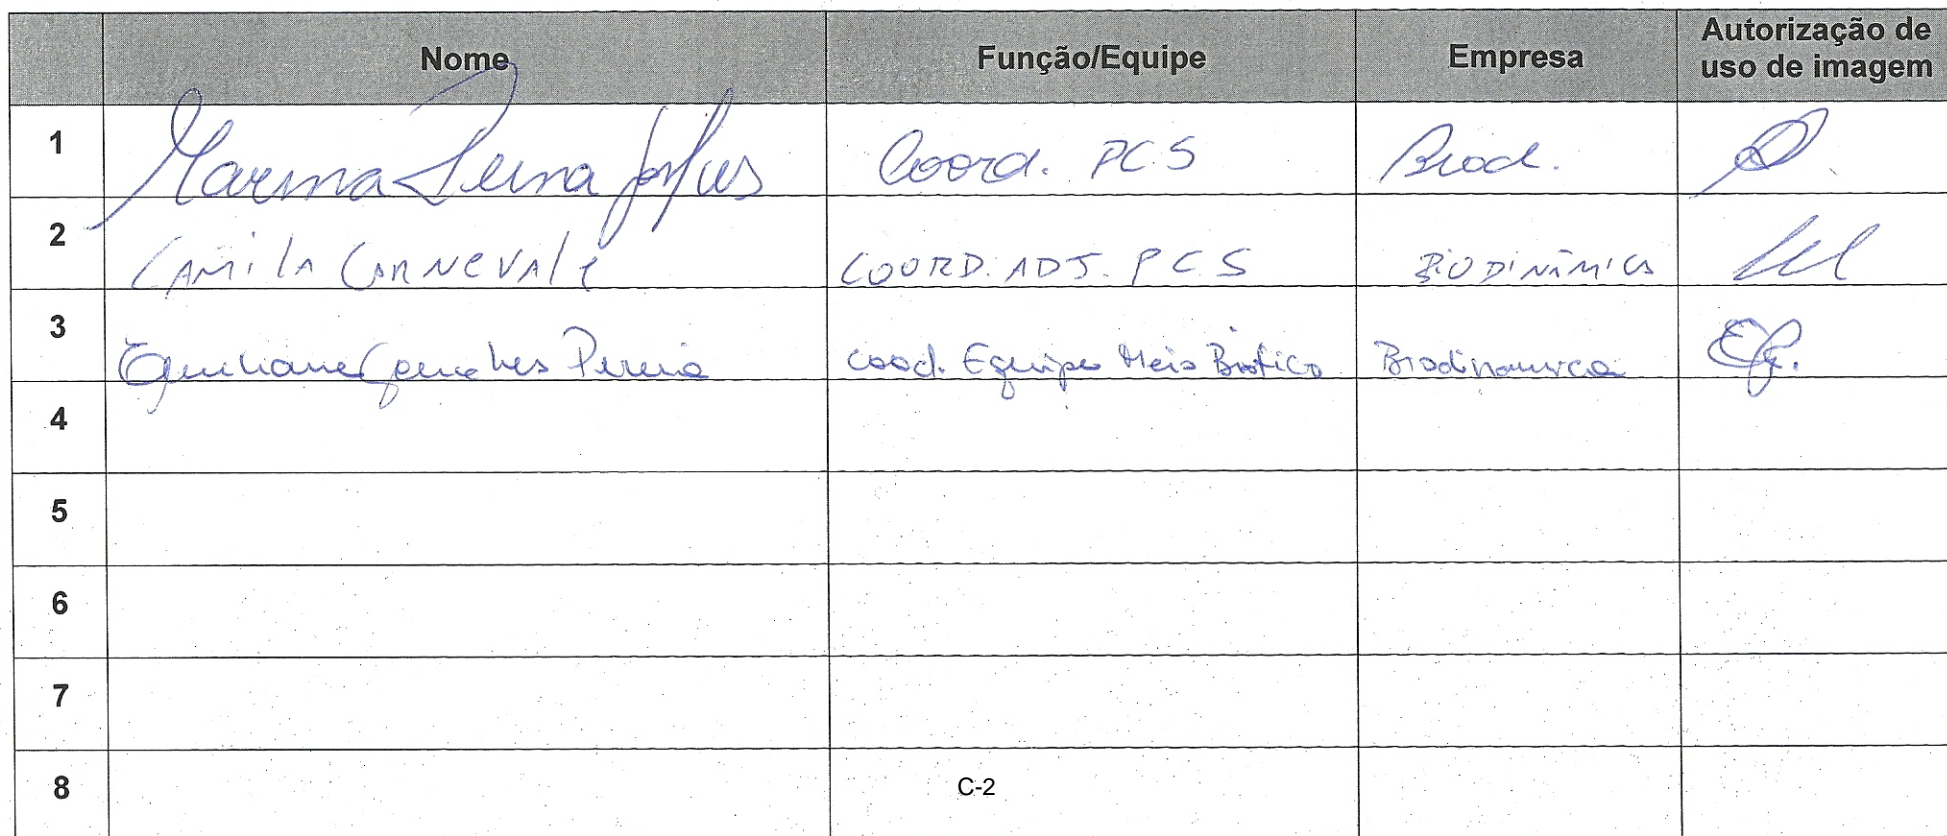 Nome Função/Equipe Empresa Autorização de uso de imagem
1 Marina Coord. PCS Biod.
2 CAMILA CARNEVALE COORD. ADJ. PCS BIODINÂMICA
3 Pereira Coord. Equipe Meio Biótico Biodinamica
4
5
6
7
8 C-2